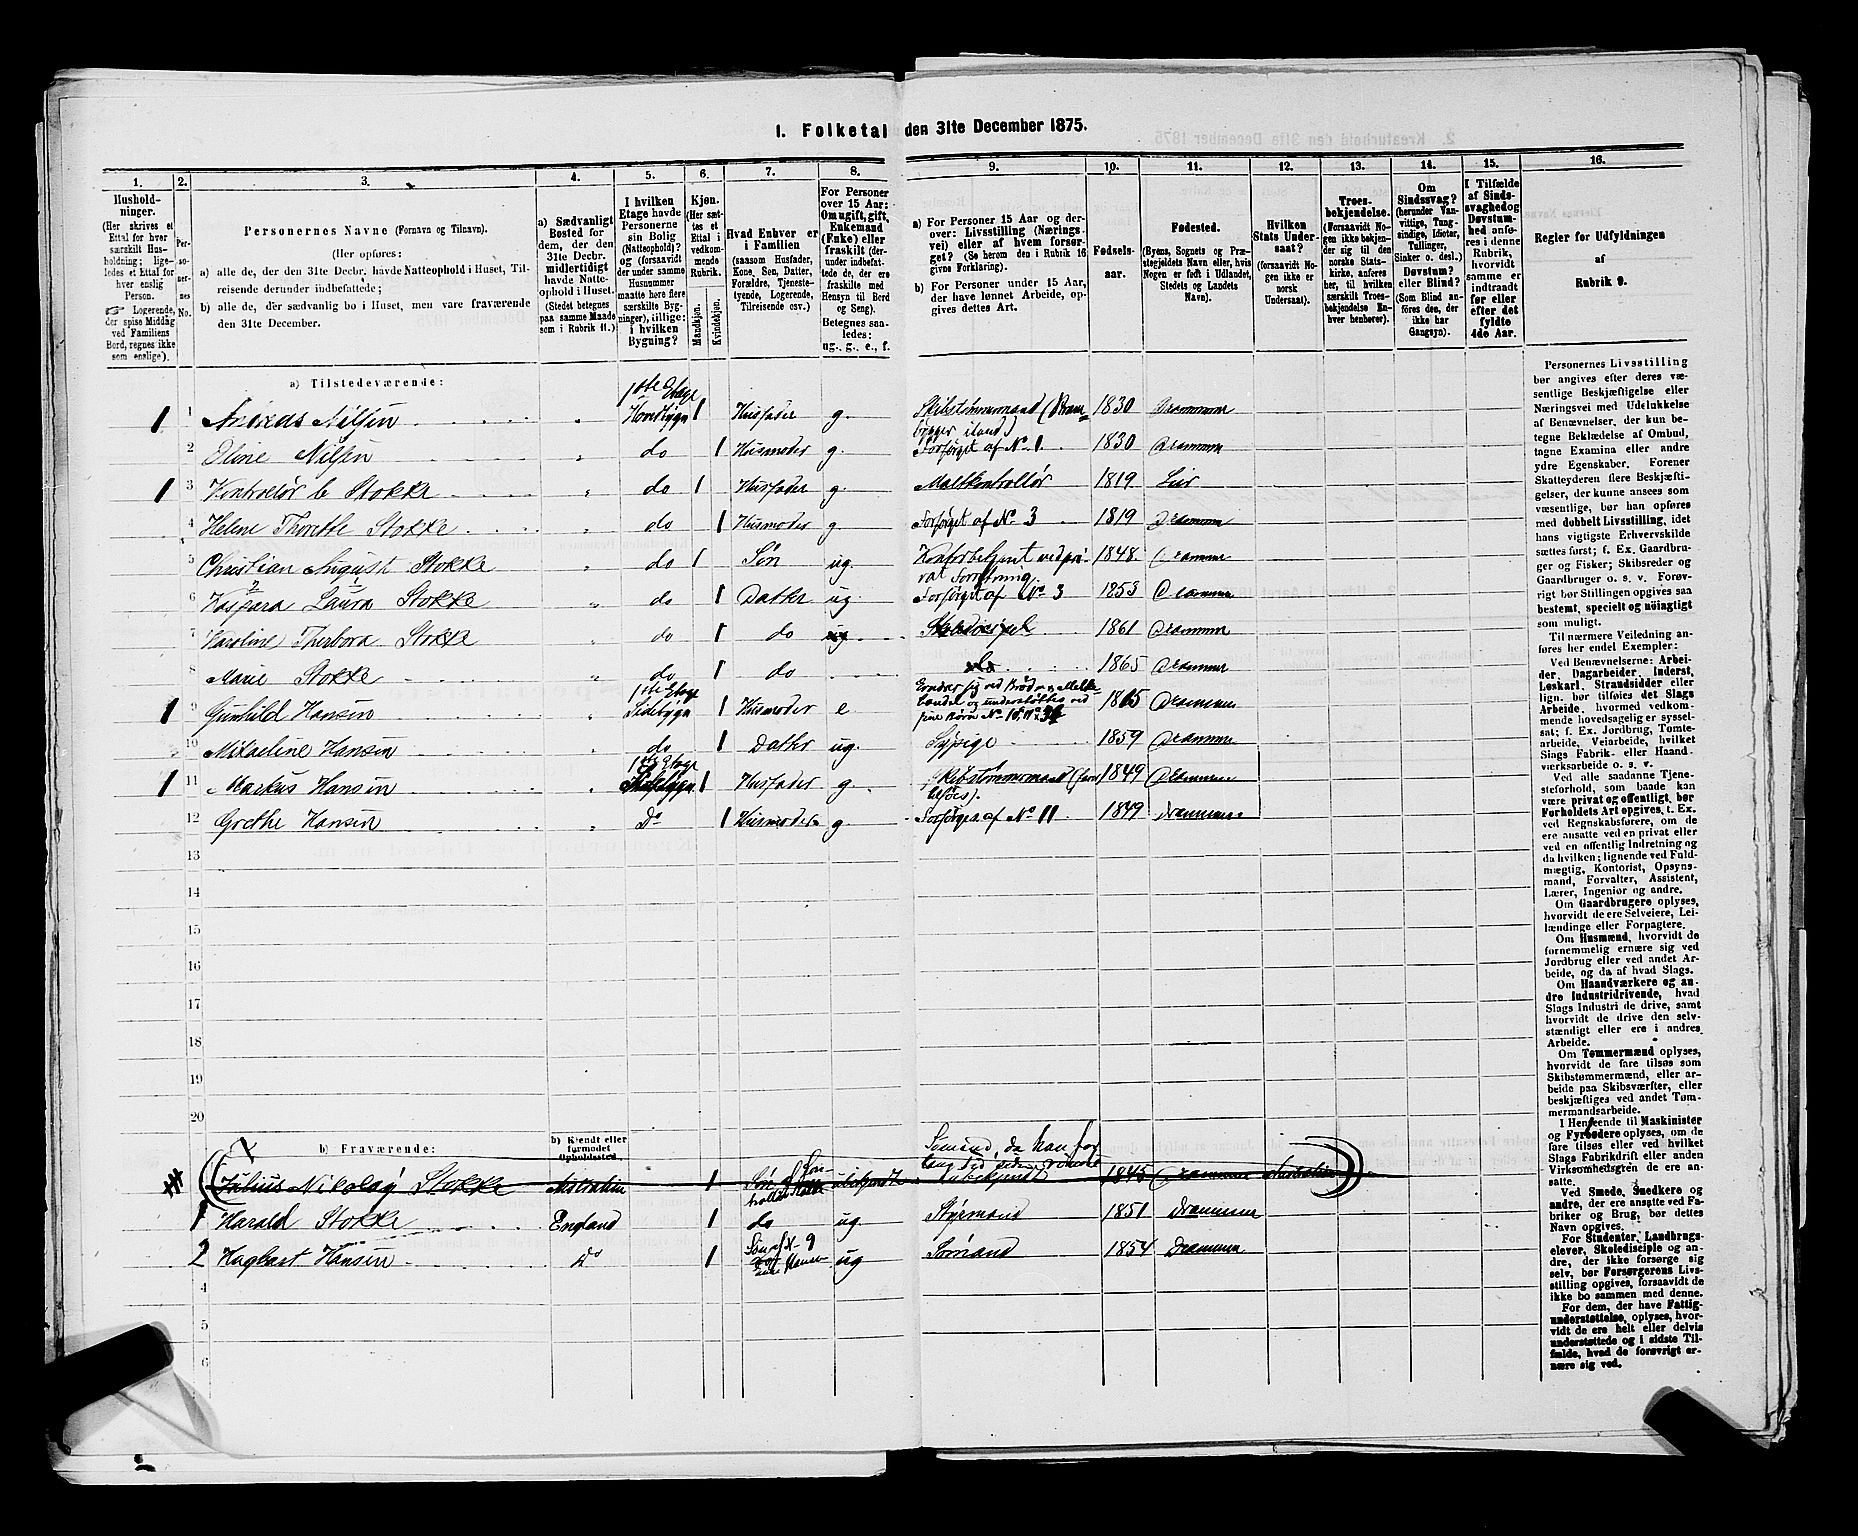 1. Folketal den 31te December 1875.
1. 2. 3. 4. 5. 6. 7. 8. 9. 10. 11. 12. 13. 14. 15. 16.
Hushold-
ninger.
(Her skrives et
Ettal for hver
særskilt Hus-
holdning; lige-
ledes et Ettal for
hver enslig
Person.
Logerende,
der spise Middag
ved Familiens
Bord, regnes ikke
som enslige).
Per-
so-
ner-
nes
No.
Personernes Navne (Fornavn og Tilnavn).
(Her opføres:
a) alle de, der den 31te Decbr. havde Natteophold i Huset, Til-
reisende derunder indbefattede;
b) alle de, der sædvanlig bo i Huset, men vare fraværende
den 31te December.
a) Sædvanligt
Bosted for
dem, der den
31te Decbr.
midlertidigt
havde Natte-
ophold i Huset.
(Stedet betegnes
paa samme Maade
som i Rubrik 11.)
I hvilken
Etage havde
Personerne
sin Bolig
(Natteophold)?
og (forsaavidt
der under samme
Husnummer
maatte høre flere
særskilte Byg-
ninger), tillige:
i hvilken
Bygning?
Kjøn.
(Her sæt-
tes et
Ettal i
vedkom-
mende
Rubrik.
Mandkjøn.
Kvindekjøn.
Hvad Enhver er
i Familien
(saasom Husfader,
Kone, Søn, Datter,
Forældre, Tjeneste-
tyende, Logerende,
Tilreisende osv.)
For Personer
over 15 Aar:
Om ugift, gift,
Enkemand
(Enke) eller
fraskilt (der-
under indbefat-
tede de, der ere
fraskilte med
Hensyn til Bord
og Seng).
Betegnes saa-
ledes:
ug., g., e., f.
a) For Personer 15 Aar og der-
over: Livsstilling (Nærings-
vei) eller af hvem forsør-
get? (Se herom den i Rubrik 16
givne Forklaring).
b) For Personer under 15 Aar,
der have lønnet Arbeide, op-
gives dettes Art.
Fødsels-
aar.
Fødested.
(Byens, Sognets og Præ-
stegjeldets Navn eller, hvis
Nogen er født i Udlandet,
Stedets og Landets
Navn).
Hvilken
Stats Under-
saat?
(forsaavidt No-
gen ikke er
norsk
Undersaat).
Troes-
bekjendelse.
(Forsaavidt No-
gen ikke bekjen-
der sig til den
norske Stats-
kirke, anføres
her, til hvilken
særskilt Troes-
bekjendelse En-
hver henhører).
Om
Sindssvag?
(herunder Van-
vittige, Tung-
sindige, Idioter,
Tullinger,
Sinker o. desl.)
Døvstum?
eller Blind?
(Som Blind an-
føres den, der
ikke har
Gangsyn).
I Tilfælde
af Sinds-
svaghed og
Døvstum-
hed anfø-
res i denne
Rubrik,
hvorvidt
samme er
indtraadt
før eller
efter det
fyldte
4de Aar.
Regler for Udfyldningen
af
Rubrik 9.
a) Tilstedeværende:
1 1 Nilsen 1ste Etage Hovedbygn 1 Husfader g. Skibstømmermand 1830 Drammen
2 Oline Nilsen do 1 Husmoder g. Forsørget af No. 1 1830 Drammen
1 3 Kontrollør Stokke do 1 Husfader g. Maltkontrollør 1819 Lier
4 Helene Thorethe Stokke do 1 Husmoder g. Forsørget af No. 3 1819 Drammen
5 Christian August Stokke do 1 Søn ug. 1848 Drammen
6 Laura Stokke do 1 Datter ug. Forsørget af No. 3 1853 Drammen
7 Karoline Stokke do 1 do ug 1861 Drammen
8 Marie Stokke do 1 do do 1865 Drammen
1 9 Gunhild Hansen 1ste Etage Sidebygn 1 Husmoder e Ernærer sig ved Brød og Melke- Drammen
10 Mikaeline Hansen do 1 Datter ug. Sypige 1859 Drammen
1 11 Markus Hansen 1ste Etage 1 Husfader g. Skibstømmermand 1849 Drammen
12 Grethe Hansen Do 1 Husmoder g Forsørges af No 11 1849 Drammen
13
14
15
16
17
18
19
20
b) Fraværende:
b) Kjendt eller
formodet
Opholdssted.
Sømand, da han for
lang tid siden
Julius Nikolay Stokke Australien 1 Søn ubekjendt 1845 Drammen Australien
1 Harald Stokke England 1 do ug Styrmand 1851 Drammen
2 Hagbart Hansen Do 1 Søn af No 9 ug Sømand 1854 Drammen
4
5
6
Personernes Livsstilling
bør angives efter deres væ-
sentlige Beskjæftigelse eller
Næringsvei med Udelukkelse
af Benævnelser, der kun be-
tegne Beklædelse af Ombud,
tagne Examina eller andre
ydre Egenskaber. Forener
Skatteyderen flere Beskjæfti-
gelser, der kunne ansees som
væsentlige, bør han opføres
med dobbelt Livsstilling, idet
hans vigtigste Erhvervskilde
sættes først; f. Ex. Gaardbru-
ger og Fisker; Skibsreder og
Gaardbruger o. s. v. Forøv-
rigt bør Stillingen opgives saa
bestemt, specielt og nøiagtigt
som muligt.
Til nærmere Veiledning an-
føres her endel Exempler:
Ved Benævnelserne: Arbei-
der, Dagarbeider, Inderst,
Løskarl, Strandsidder eller
lign. bør tilføies det Slags
Arbeide, hvormed vedkom-
mende hovedsagelig er syssel-
sat; f. Ex. Jordbrug, Tomte-
arbeide, Veiarbeide, hvilken
Slags Fabrik- eller Haand-
værksarbeide o. s. v.
Ved alle saadanne Tjene-
steforhold, som baade kan
være privat og offentligt, bør
Forholdets Art opgives, t. Ex.
ved Regnskabsførere, om de
ere ansatte ved en privat eller
ved en offentlig Indretning og
da hvilken; lignende ved Fuld-
mægtig, Kontorist, Opsyns-
mand, Forvalter, Assistent,
Lærer, Ingeniør og andre.
Om Gaardbrugere oplyses,
hvorvidt de ere Selveiere, Lei-
lændinge eller Forpagtere.
Om Husmænd, hvorvidt de
fornemmelig ernære sig ved
Jordbrug eller ved andet Ar-
beide, og da af hvad Slags.
Om Haandværkere og an-
dre Industridrivende, hvad
Slags Industri de drive, samt
hvorvidt de drive den selv-
stændigt eller ere i andres
Arbeide.
Om Tømmermænd oplyses,
hvorvidt de fare tilsøs som
Skibstømmermænd, eller ar-
beide paa Skibsværfter, eller
beskjæftiges ved andet Tøm-
mermandsarbeide.
I Henseende til Maskinister
og Fyrbødere oplyses, om de
fare tilsøs eller ved hvilket
Slags Fabrikdrift eller anden
Virksomhedsgren de ere an-
satte.
Ved Smede, Snedkere og
andre, der ere ansatte ved Fa-
briker og Brug, bør dettes
Navn opgives.
For Studenter, Landbrugs-
elever, Skoledisciple og an-
dre, der ikke forsørge sig
selv, bør Forsørgerens Livs-
stilling opgives, forsaavidt de
ikke bo sammen med denne.
For dem, der have Fattig-
understøttelse, oplyses, hvor-
vidt de ere helt eller delvis
understøttede og i sidste Til-
fælde, hvad de forøvrigt er-
nære sig ved.